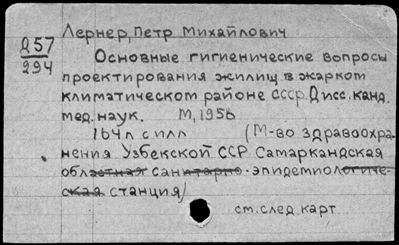 Лернер, Петр Михайлович
Д57
294
Основные гигиенические вопросы
проектирования жилищ в жарком
климатическом районе СССР. Дисс. канд.
мед. наук. М, 1956
164л с илл (М-во здравоохра-
нения Узбекской ССР Самаркандская
областная санитарно-эпидемиологиче-
ская станция)
см. след. карт